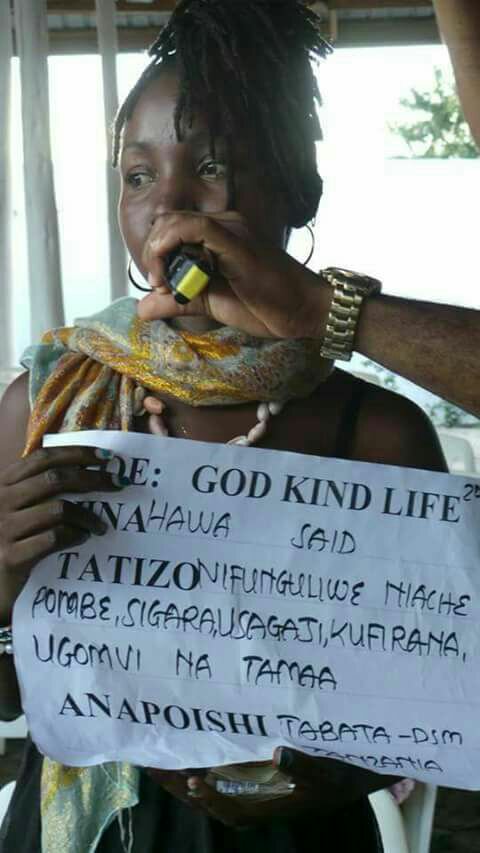 DE: GOD KIND LIFE
JINA HAWA SAID
TATIZO NIFUNGULIWE NIACHE
POMBE, SIGARA, USAGAJI, KUFIRANA,
UGOMVI NA TAMAA
ANAPOISHI TABATA-DSM
TANZANIA